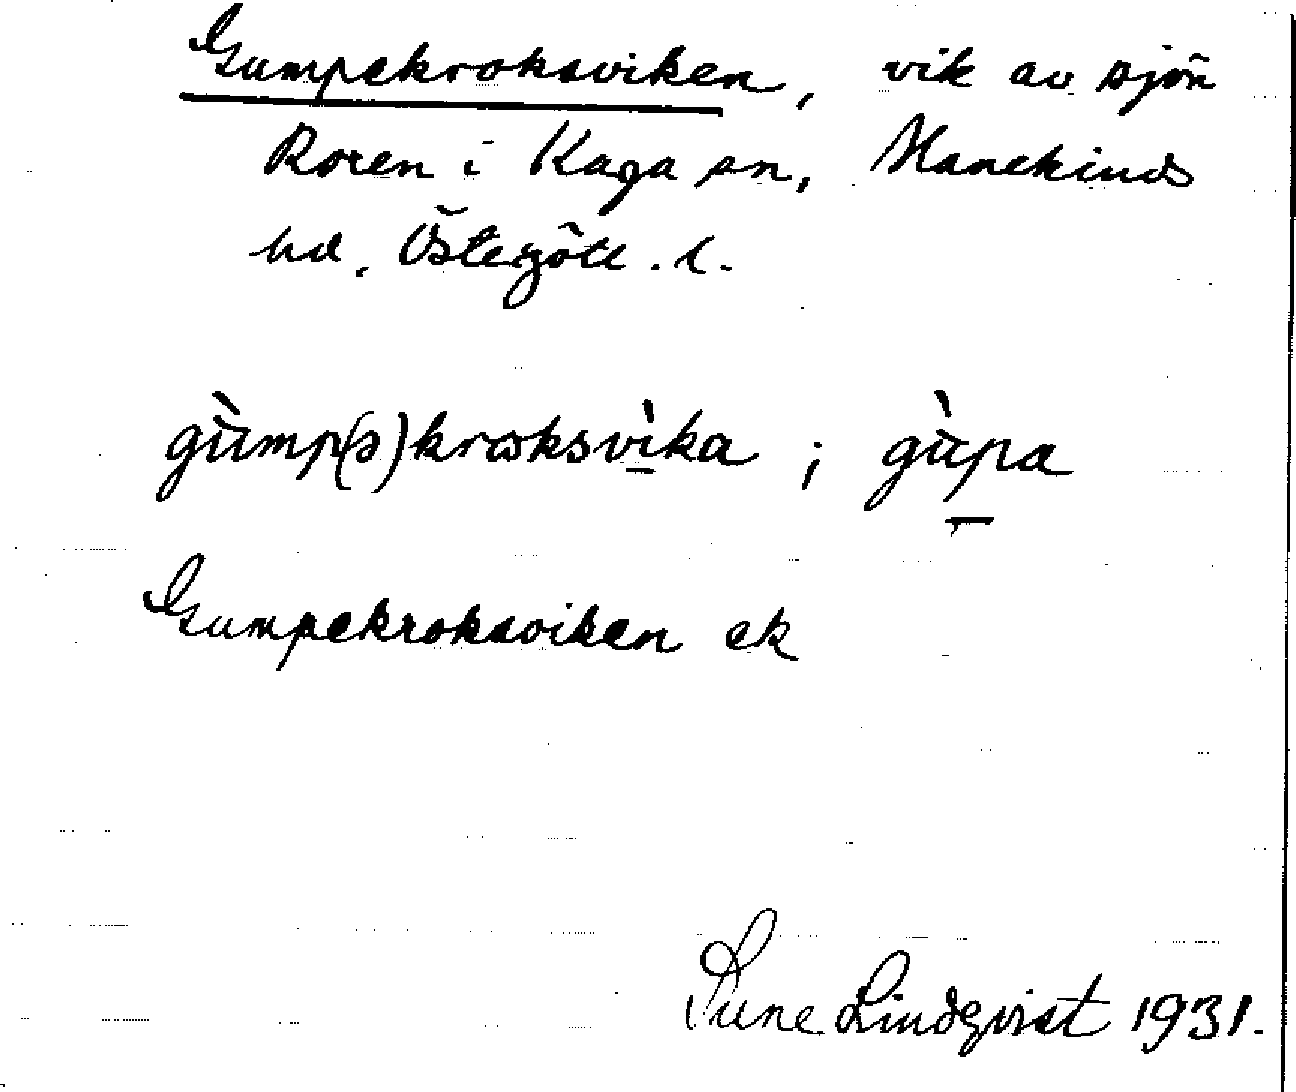 Gumpekroksviken, vik av sjön
Roren i Kaga sn, Hanekinds
hd, Östergötl. l.
gùmp(ə)kroksvìka ; gùpa
Gumpekroksviken ek
Sune Lindqvist 1931.